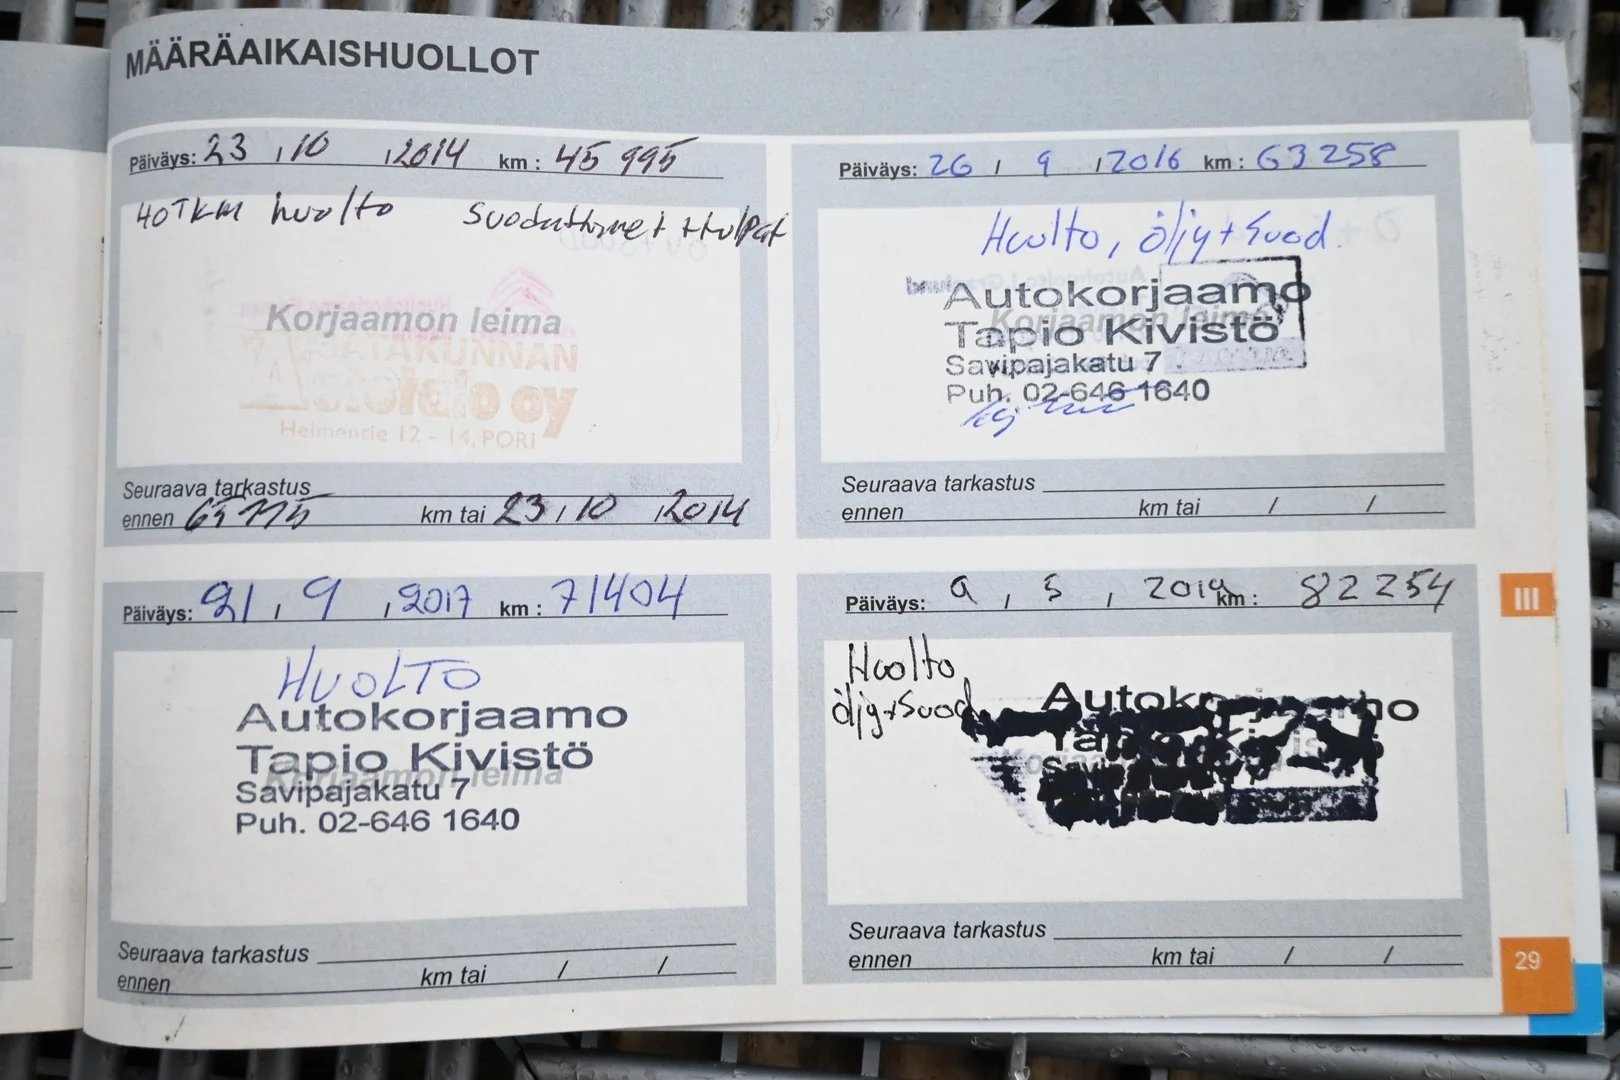 MÄÄRÄAIKAISHUOLLOT
Päiväys: 23 , 10 , 2014 km : 45 995
40TKM huolto Suodattimet + tulpat
Korjaamon leima
TAKUNNAN
oy
Helmentie 12 - 14, PORI
Seuraava tarkastus
ennen km tai 23 , 10 , 2014
Päiväys: 26 / 9 , 2016 km : 63 258
Huolto, öljy+Suod.
Autokorjaamo
Korjaamon leima
Tapio Kivistö
Savipajakatu 7
Puh. 02-646 1640
Seuraava tarkastus
ennen km tai / /
Päiväys: 21 , 9 , 2017 km : 71404
HUOLTO
Autokorjaamo
Tapio Kivistö
Korjaamon leima
Savipajakatu 7
Puh. 02-646 1640
Seuraava tarkastus
ennen km tai / /
Päiväys: 9 , 5 , 2019 km : 82 254
Huolto
öljy+Suod
Seuraava tarkastus
ennen km tai / /
III
29